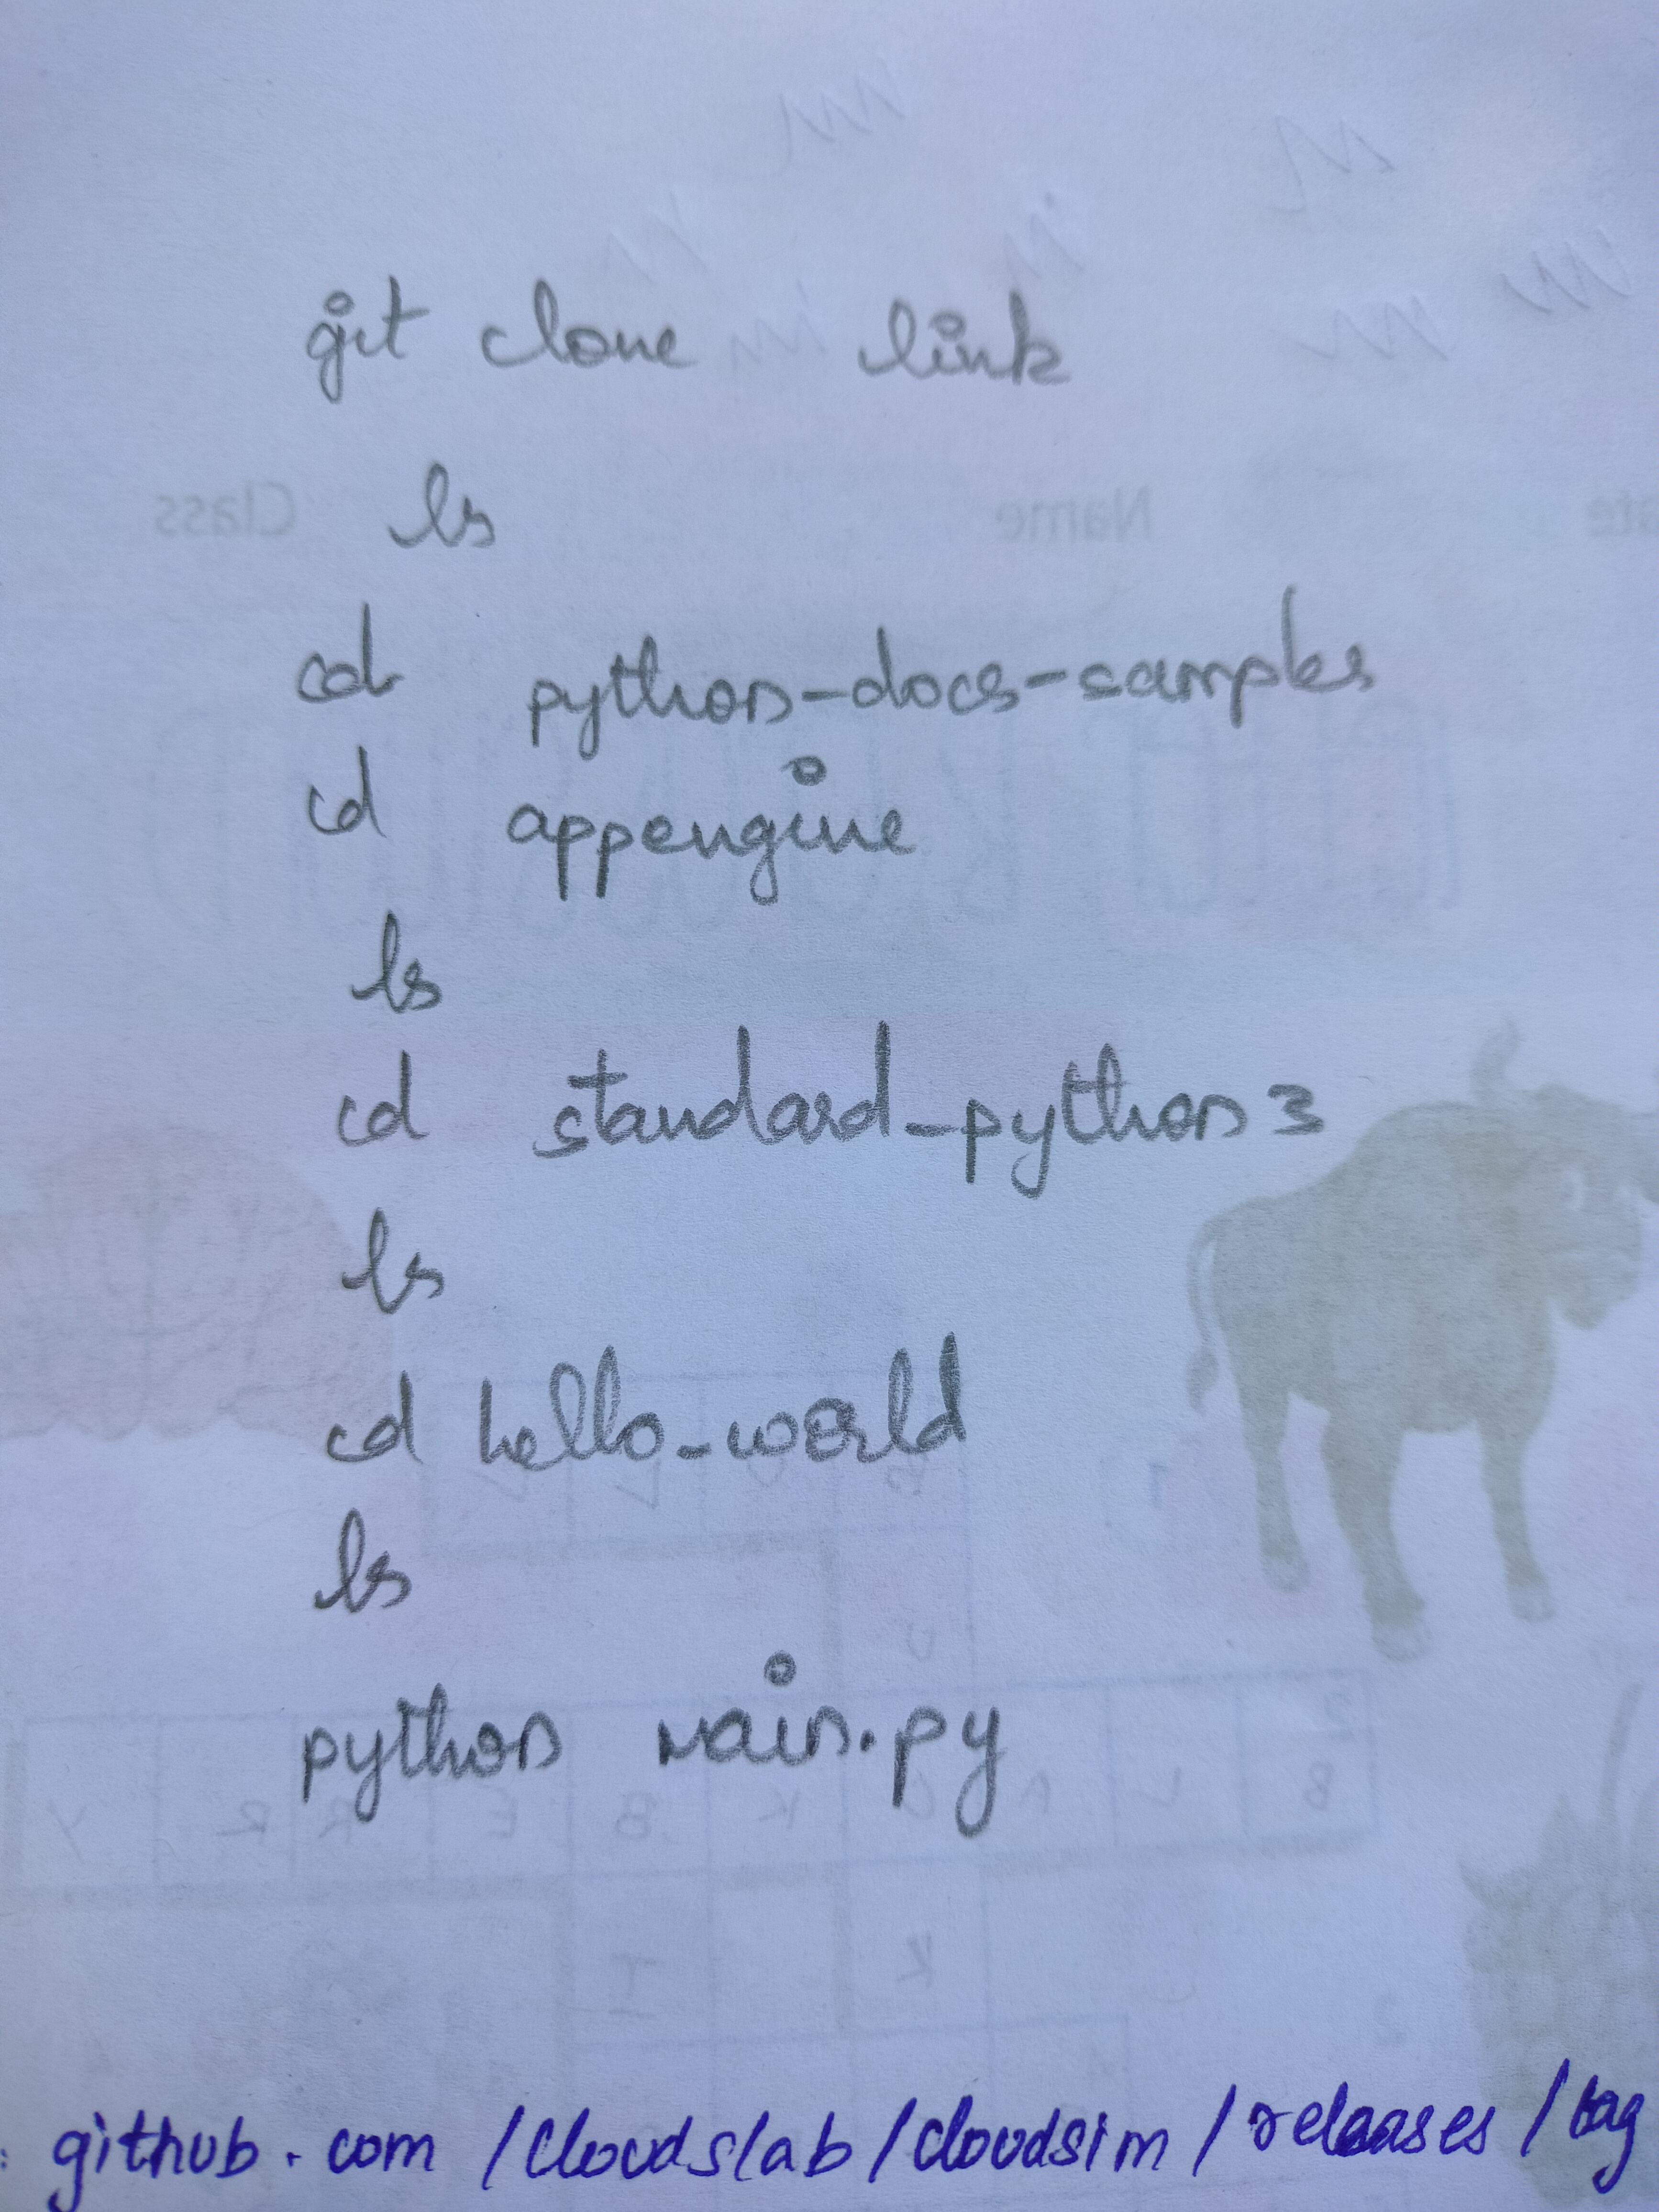 git clone link
ls
cd python-docs-samples
cd appengine
ls
cd standard_python3
ls
cd hello_world
ls
python main.py
: github.com/Cloudslab/cloudsim/releases/tag